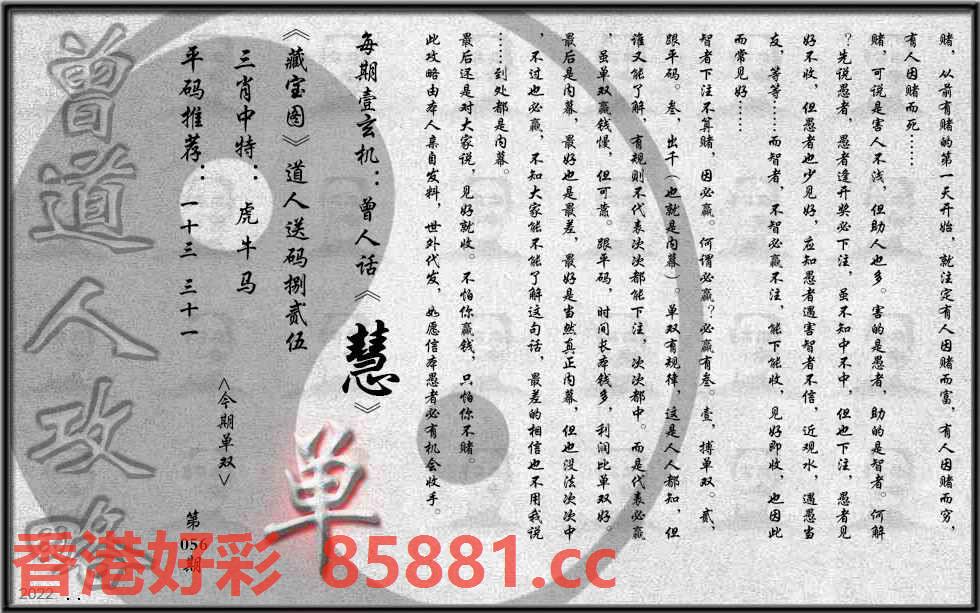 赌，从前有赌的第一天开始，就注定有人因赌而富，有人因赌而穷，
有人因赌而死……
赌，可说是害人不浅，但助人也多。害的是愚者，助的是智者。何解
？先说愚者，愚者逢开奖必下注，虽不知中不中，但也下注，愚者见
好不收，但愚者也少见好，应知愚者遇害智者不信，近观水，遇愚当
友，等等……而智者，不智必赢不注，能下能收，见好即收，也因此
而常见好……
智者下注不算赌，因必赢。何谓必赢？必赢有叁。壹，搏单双。贰，
跟平码。叁，出千（也就是内幕）。单双有规律，这是人人都知，但
谁又能了解，有规则不代表次次都能下注，次次都中。而是代表必赢
，虽单双赢钱慢，但可靠。跟平码，时间长本钱多，利润比单双好。
最后是内幕，最好也是最差，最好是当然真正内幕，但也没法次次中
，不过也必赢，不知大家能不能了解这句话，最差的相信也不用我说
……到处都是内幕。
最后还是对大家说，见好就收。不怕你赢钱，只怕你不赌。
此攻略由本人亲自发料，世外代发，如愿信本愚者必有机会收手。
每期壹玄机：曾人话《慧》
《藏宝图》道人送码捌贰伍
三肖中特：虎牛马
平码推荐：一十三 三十一
<今期单双>
单
第056期
曾道人攻略
香港好彩 85881.cc
2022